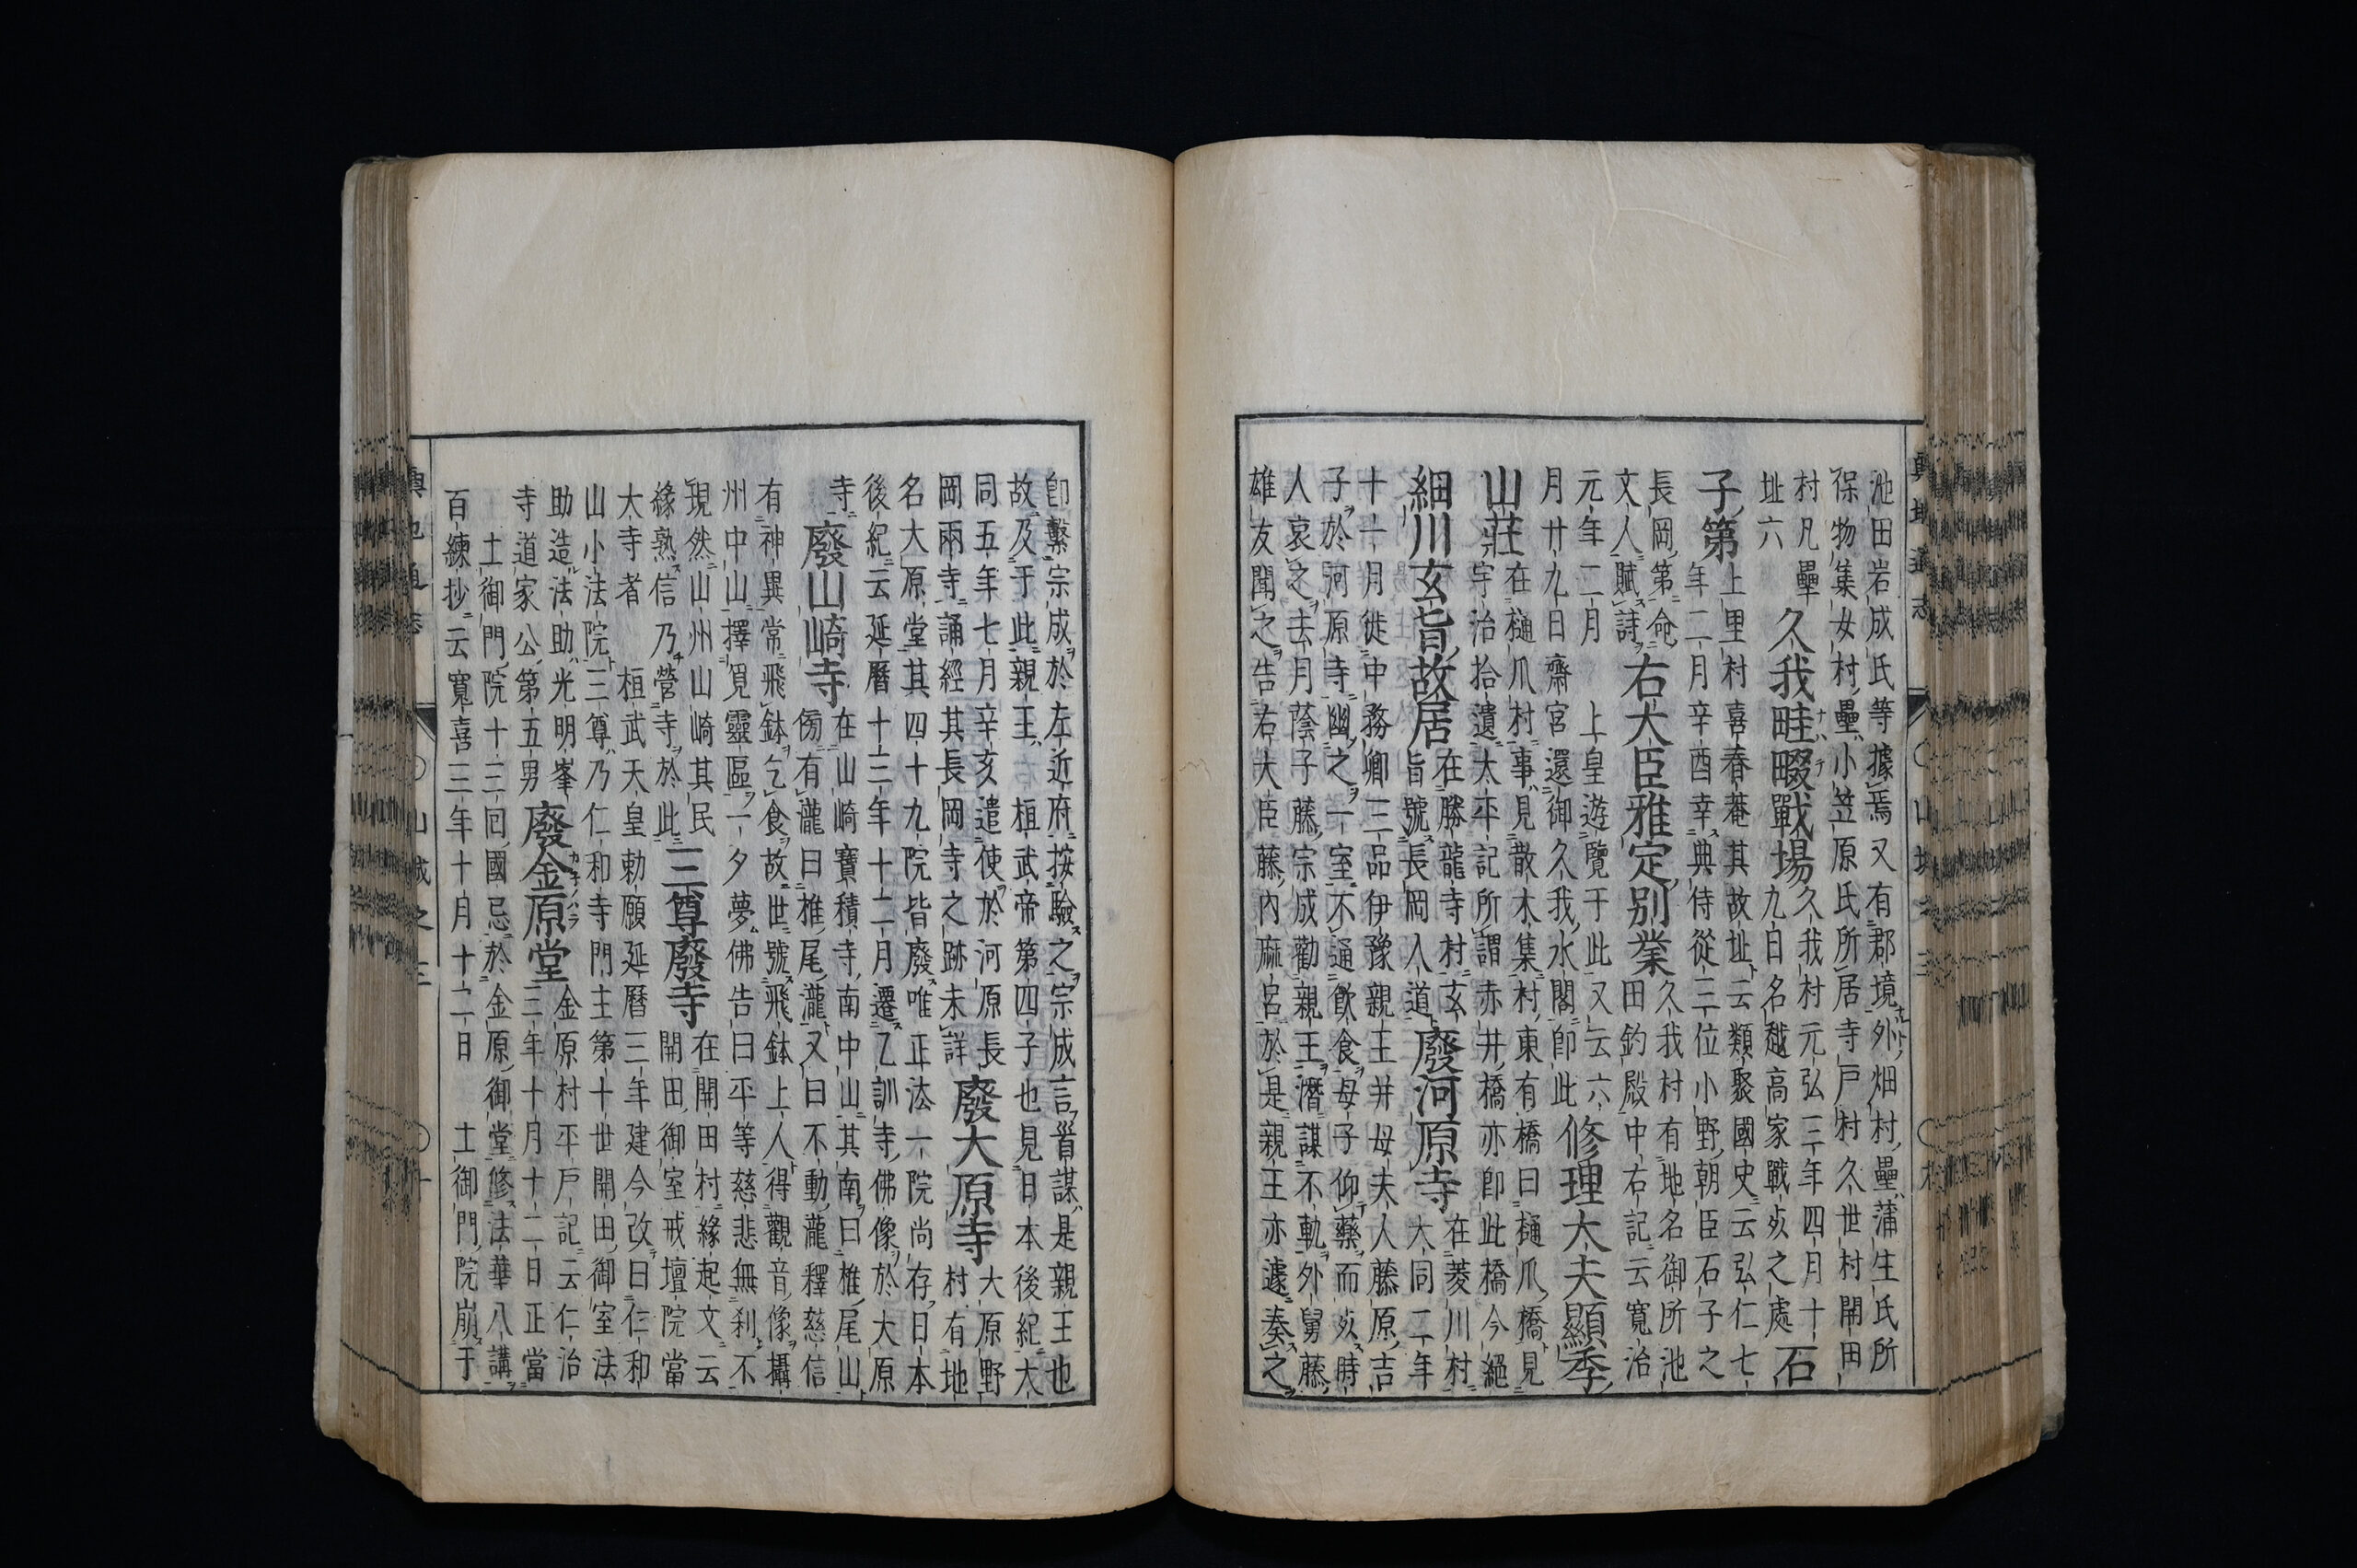 池田岩成氏等據焉又有郡境外畑村壘蒲生氏所
保物集女村壘小笠原氏所居寺戸村久世村開田
村凡壘
址六
久我畦畷戰場
久我村元弘三年四月十
九日名越高家戰歿之處
石
子第
上里村喜春菴其故址云類聚國史云弘仁七
年二月辛酉幸典侍從三位小野朝臣石子之
長岡第命
文人賦詩
右大臣雅定別業
久我村有地名御所池
田釣殿中右記云寬治
元年二月 上皇遊覽于此又云六
月廿九日齋宮還御久我水閣即此
修理大夫顯季
山莊
在樋爪村事見散木集村東有橋曰樋爪橋見
宇治拾遺太平記所謂赤井橋亦即此橋今絕
細川玄旨故居
在勝龍寺村玄
旨號長岡入道
廢河原寺
在菱川村
大同二年
十一月徙中務卿三品伊豫親王并母夫人藤原吉
子於河原寺幽之一室不通飲食母子仰藥而歿時
人哀之去月蔭子藤宗成勸親王潛謀不軌外舅藤
雄友聞之告右大臣藤內麻呂於是親王亦遽奏之
即繫宗成於左近府按驗之宗成言首謀是親王也
故及于此親王 桓武帝第四子也見日本後紀大
同五年七月辛亥遣使於河原長
岡兩寺誦經其長岡寺之跡未詳
廢大原寺
大原野
村有地
名大原堂其四十九院皆廢唯正法一院尚存日本
後紀云延曆十三年十二月遷乙訓寺佛像於大原
寺
廢山崎寺
在山崎寶積寺南中山其南曰椎尾山
傍有瀧曰椎尾瀧又曰不動瀧釋慈信
有神異常飛鉢乞食故世號飛鉢上人得觀音像攝
州中山擇覓靈區一夕夢佛告曰平等慈悲無刹不
現然山州山崎其民
緣熟信乃營寺於此
三尊廢寺
在開田村緣起文云
開田御室戒壇院當
大寺者 桓武天皇勅願延曆三年建今改曰仁和
山小法院三尊乃仁和寺門主第十世開田御室法
助造法助光明峯
寺道家公第五男
廢金原堂
金原村平戸記云仁治
三年十月十二日正當
土御門院十三回國忌於金原御堂修法華八講
百練抄云寬喜三年十月十二日 土御門院崩于